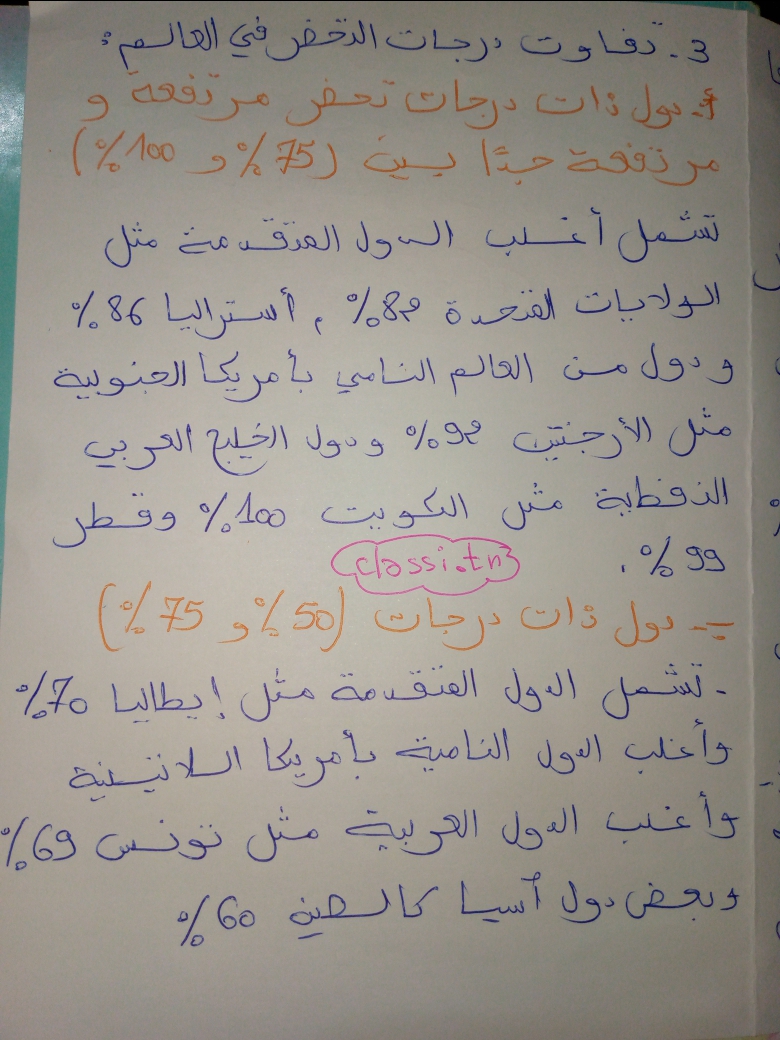 3. تفاوت درجات التحضر في العالم:
أ- دول ذات درجات تحضر مرتفعة و
مرتفعة جدًا بين (75% و 100%)
تشمل أغلب الدول المتقدمة مثل
الولايات المتحدة 82%، أستراليا 86%
ودول من العالم النامي بأمريكا الجنوبية
مثل الأرجنتين 92% ودول الخليج العربي
النفطية مثل الكويت 100% وقطر
99%.
classi.tn
ب- دول ذات درجات (50% و 75%)
- تشمل الدول المتقدمة مثل إيطاليا 70%
وأغلب الدول النامية بأمريكا اللاتينية
وأغلب الدول العربية مثل تونس 69%
وبعض دول آسيا كالصين 60%